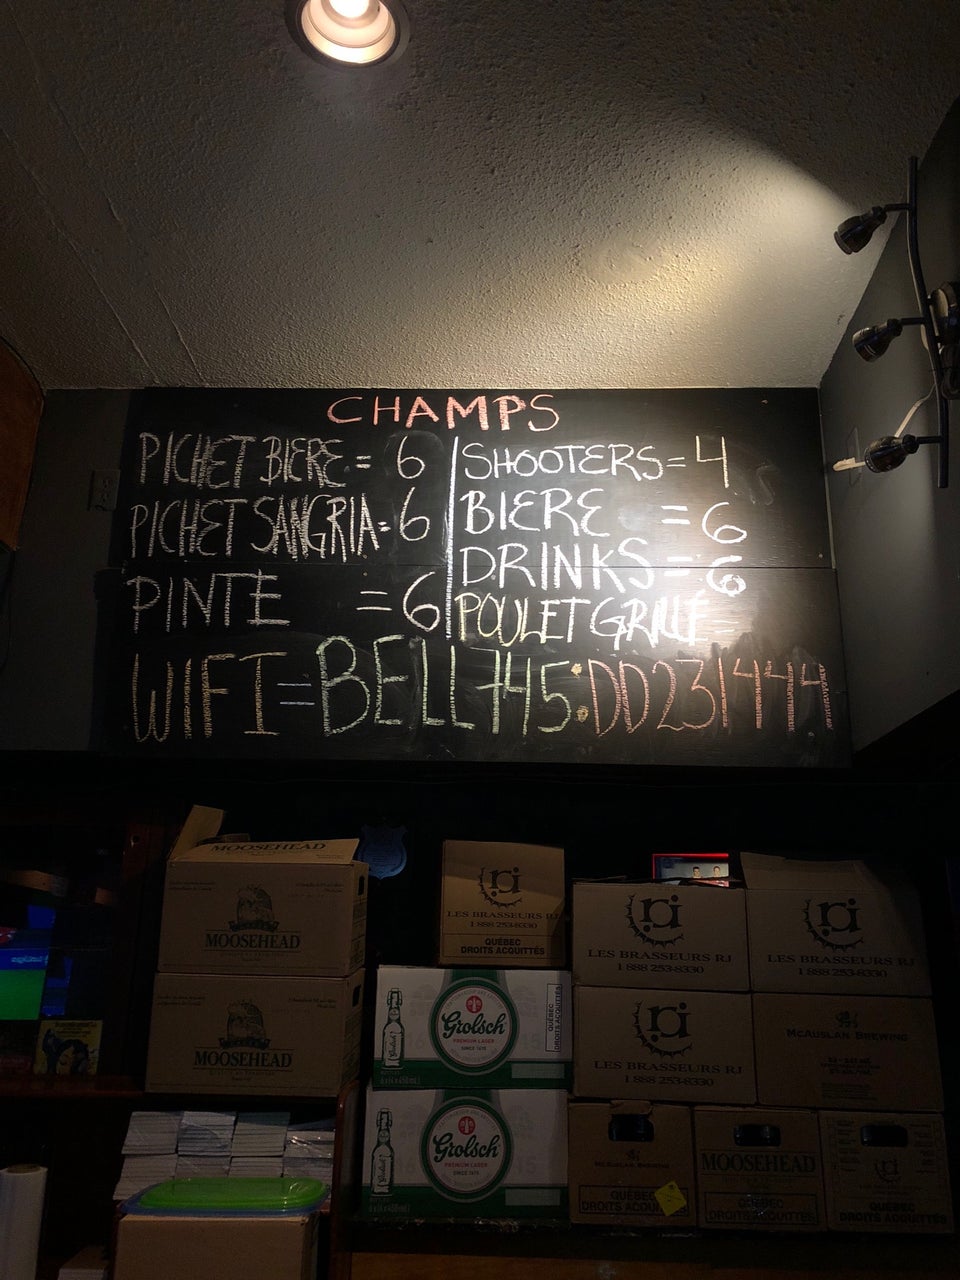 CHAMPS
PICHET BIERE = 6
PICHET SANGRIA = 6
PINTE = 6
SHOOTERS = 4
BIERE = 6
DRINKS = 6
POULET GRILLÉ
WIFI = BELL745:DD231444
MOOSEHEAD
MOOSEHEAD
MOOSEHEAD
rj
LES BRASSEURS RJ
1 888 253-8330
QUÉBEC
DROITS ACQUITTÉS
rj
LES BRASSEURS RJ
1 888 253-8330
rj
LES BRASSEURS RJ
1 888 253-8330
Grolsch
PREMIUM LAGER
SINCE 1615
QUÉBEC
DROITS ACQUITTÉS
rj
LES BRASSEURS RJ
1 888 253-8330
MCAUSLAN BREWING
Grolsch
PREMIUM LAGER
SINCE 1615
MCAUSLAN BREWING
QUÉBEC
DROITS
MOOSEHEAD